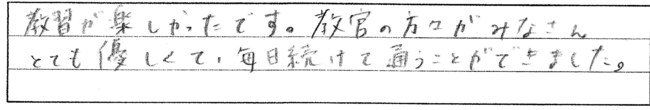 教習が楽しかったです。教官の方々がみなさん
とても優しくて、毎日続けて通うことができました。